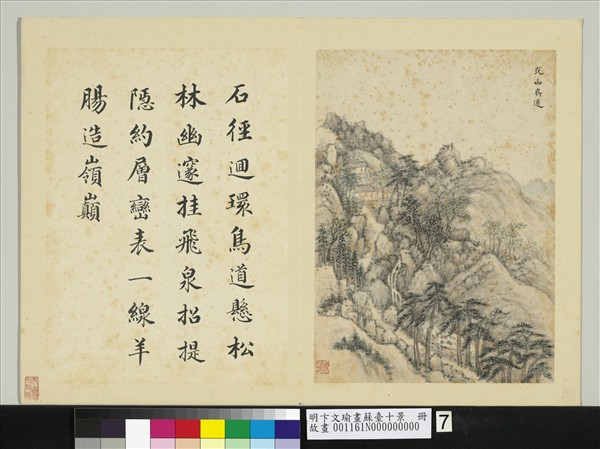 花山鳥道
石徑迴環鳥道懸松
林幽邃挂飛泉招提
隱約層巒表一線羊
腸造嶺巔
明卞文瑜畫蘇臺十景 冊
故畫 001161N000000000
7